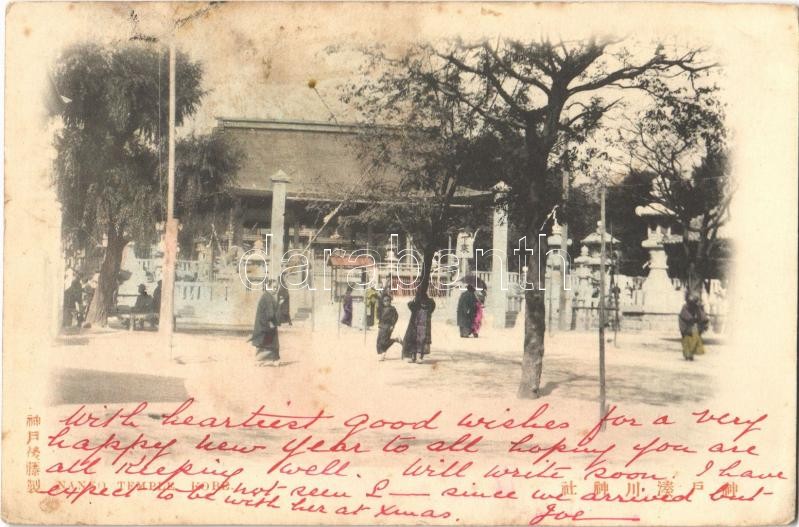 darabanth
With heartiest good wishes for a very
happy new year to all hoping you are
all keeping well. Will write soon. I have
not seen L — since we arrived but
expect to be with her at Xmas. Joe —
NANKO TEMPLE, KOBE.
神戸湊川神社
神戸後藤製